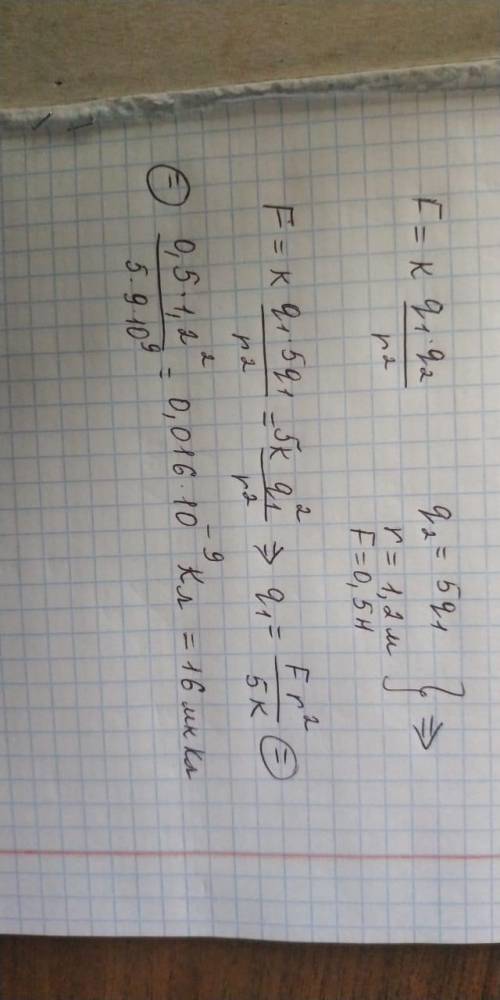 F = к q₁·q₂ / r²   q₂ = 5q₁
r = 1,2м
F = 0,5н } ⇒
F = к q₁·5q₁ / r² = 5к q₁² / r² ⇒ q₁ = F r² / 5к ⊜
⊜ 0,5·1,2² / 5·9·10⁹ = 0,016·10⁻⁹ Кл = 16 мк Кл